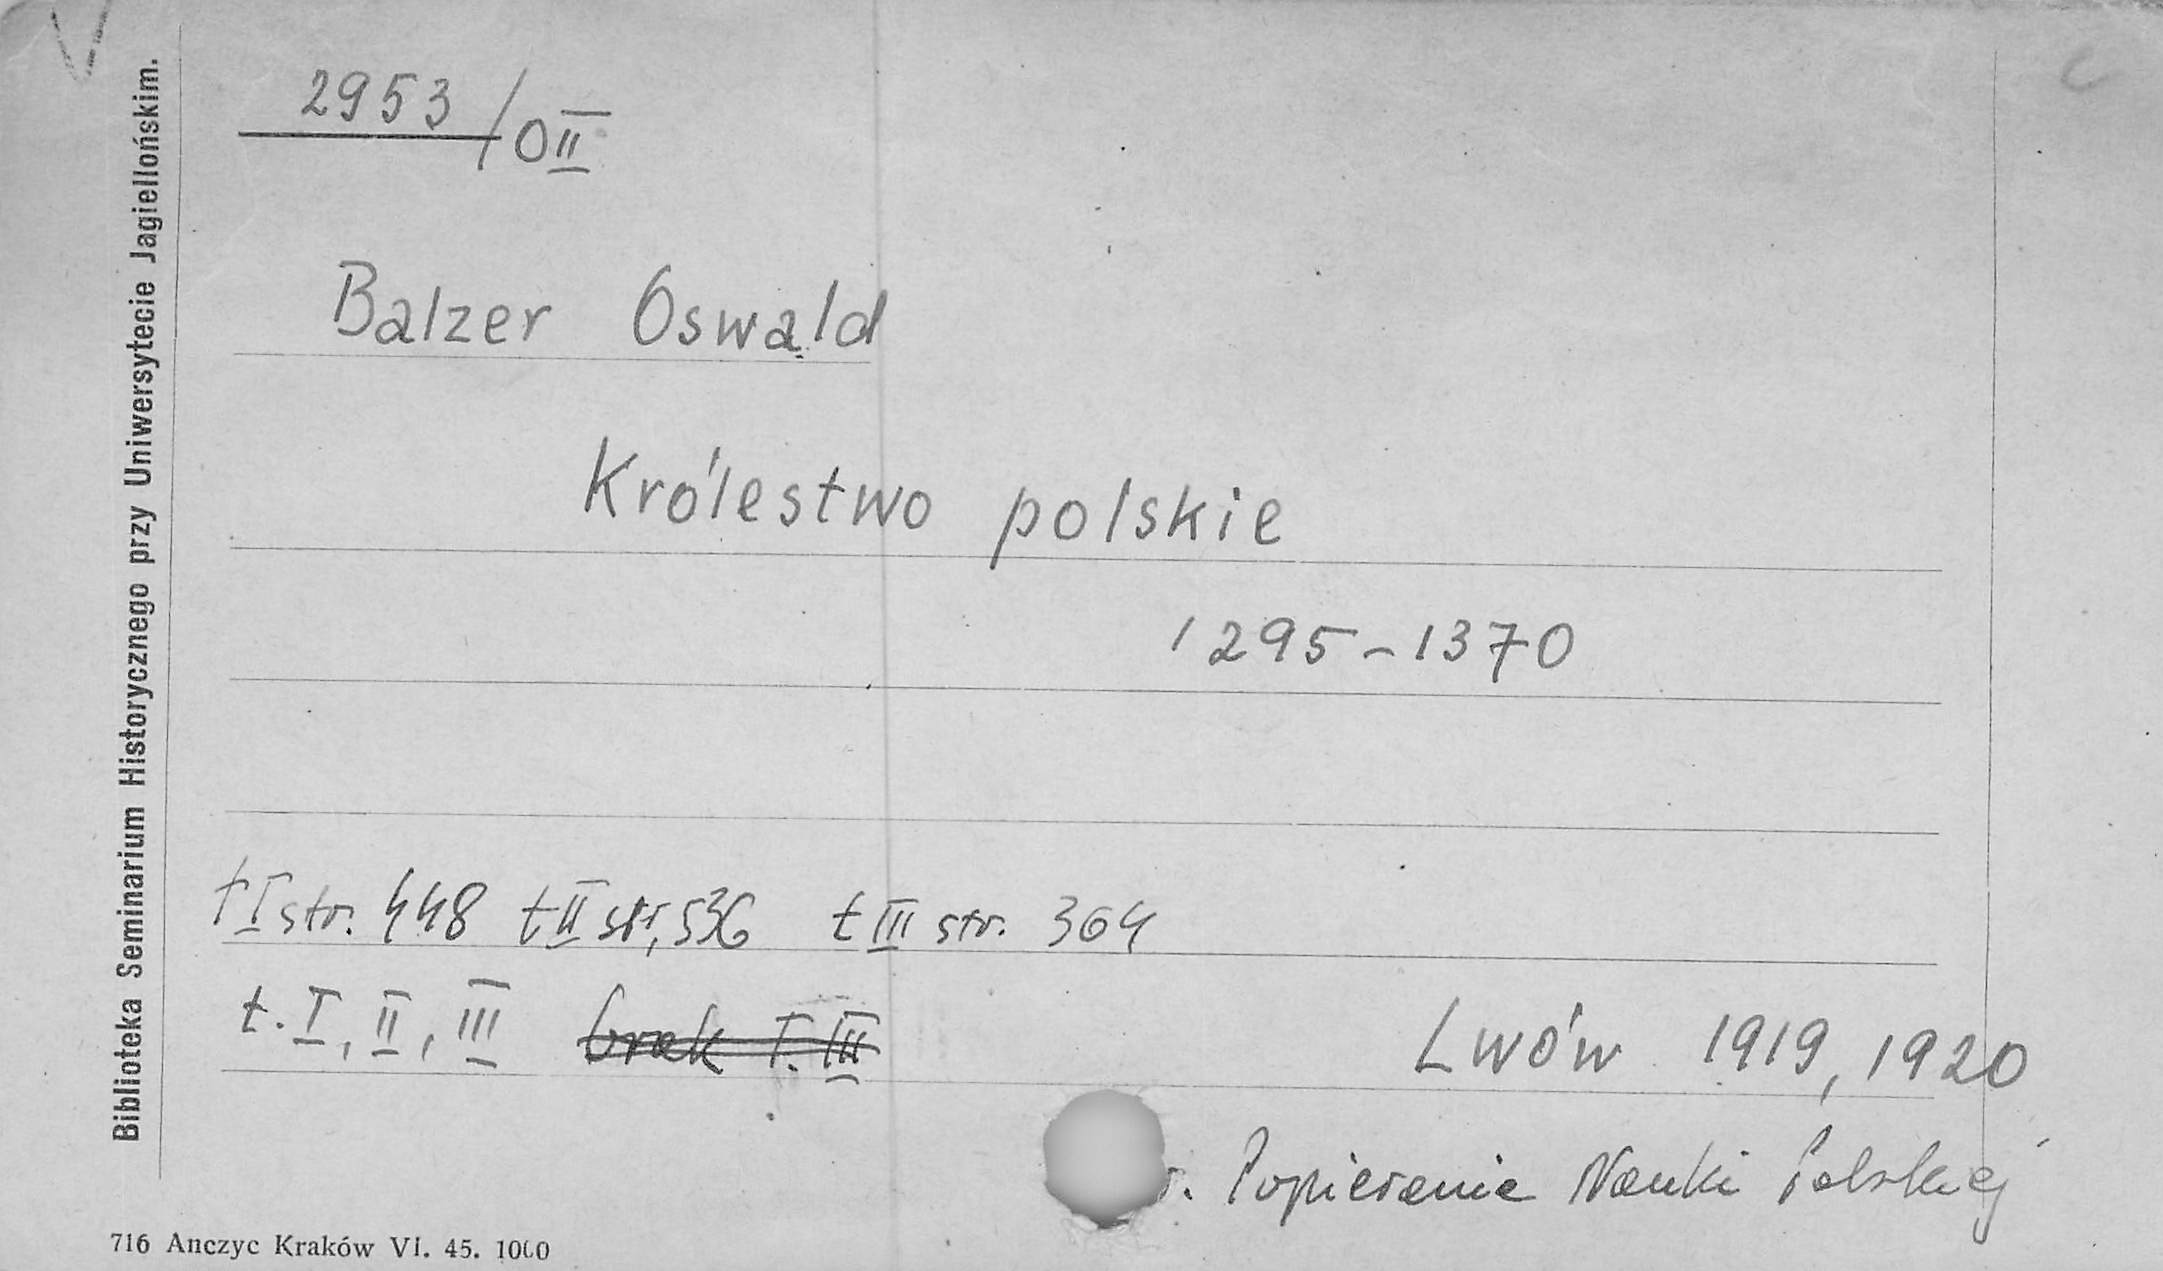 2953/OII
Balzer Oswald
Królestwo polskie
1295-1370
t I str. 448 t II str. 536 t III str. 364
t. I, II, III brak T. III
Lwów 1919, 1920
r. Popieranie Nauki Polskiej
Biblioteka Seminarium Historycznego przy Uniwersytecie Jagiellońskim.
716 Anczyc Kraków VI. 45. 1000